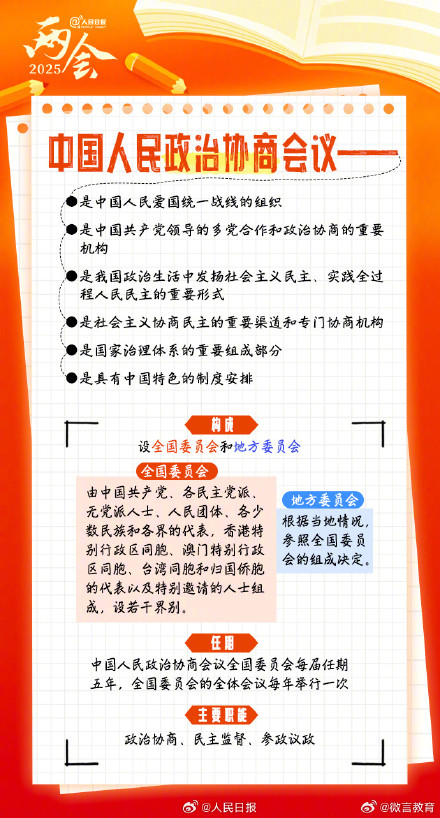 @人民日报
两会
2025
中国人民政治协商会议——
●是中国人民爱国统一战线的组织
●是中国共产党领导的多党合作和政治协商的重要
机构
●是我国政治生活中发扬社会主义民主、实践全过
程人民民主的重要形式
●是社会主义协商民主的重要渠道和专门协商机构
●是国家治理体系的重要组成部分
●是具有中国特色的制度安排
构成
设全国委员会和地方委员会
全国委员会
由中国共产党、各民主党派、
无党派人士、人民团体、各少
数民族和各界的代表，香港特
别行政区同胞、澳门特别行政
区同胞、台湾同胞和归国侨胞
的代表以及特别邀请的人士组
成，设若干界别。
地方委员会
根据当地情况，
参照全国委员
会的组成决定。
任期
中国人民政治协商会议全国委员会每届任期
五年，全国委员会的全体会议每年举行一次
主要职能
政治协商、民主监督、参政议政
@人民日报
@微言教育